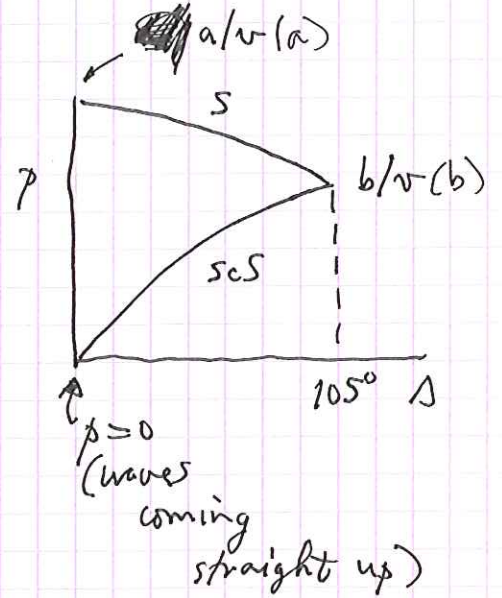 a/v(a)
S
p
b/v(b)
ScS
105° Δ
p=0
(waves
coming
straight up)